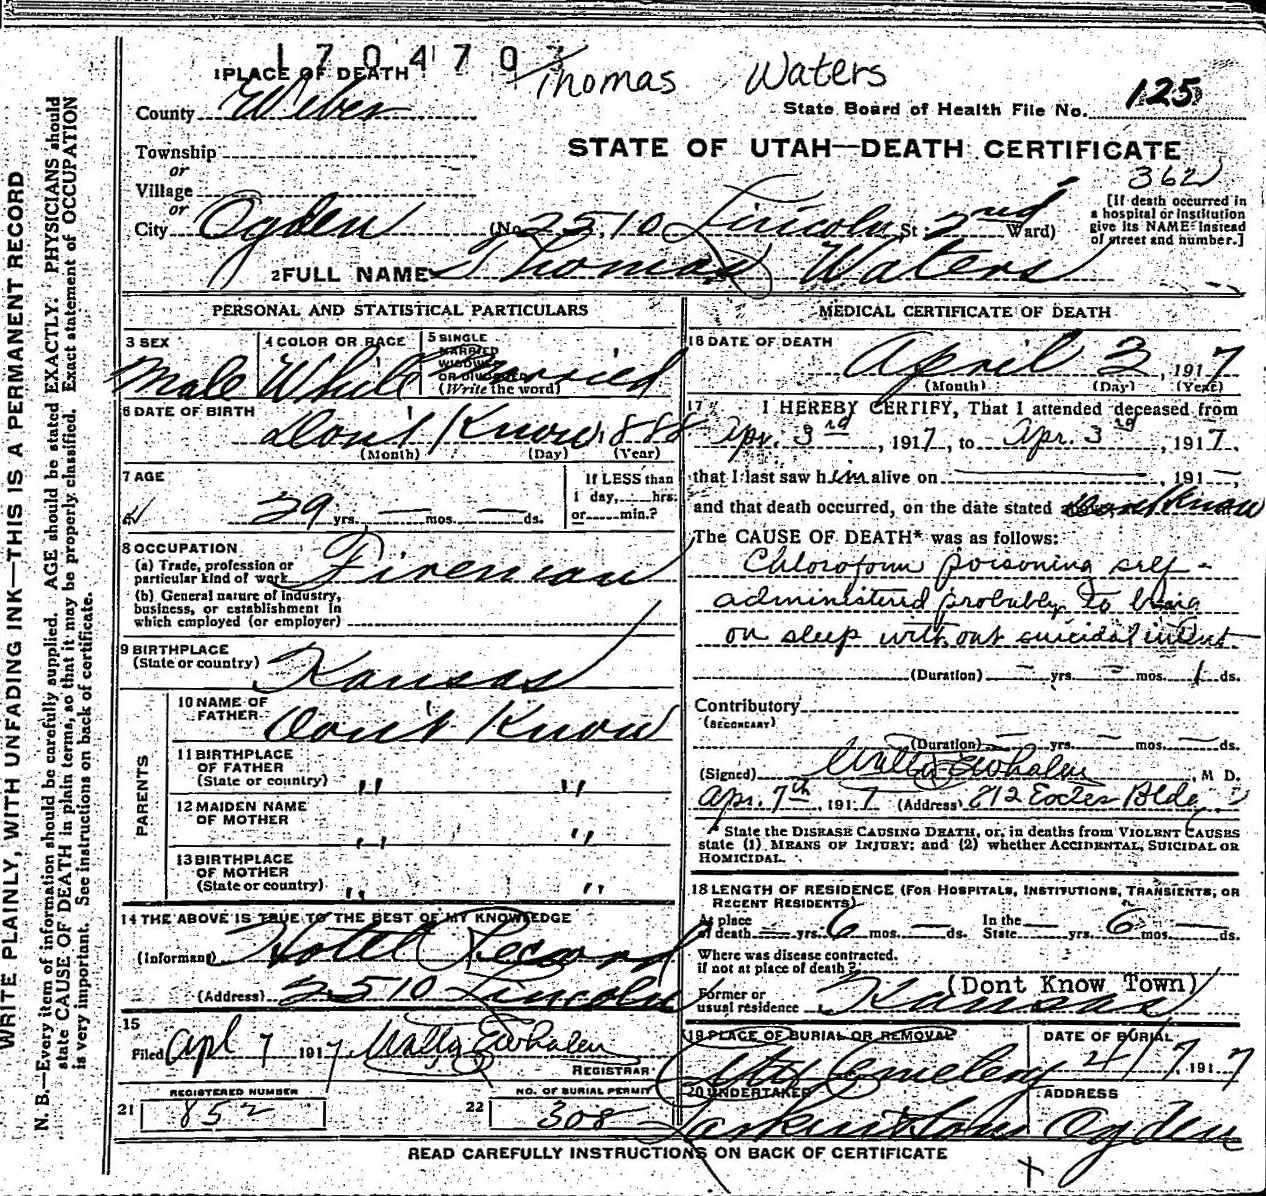 1704707
Thomas Waters
1 PLACE OF DEATH
County Weber
State Board of Health File No. 125
Township
STATE OF UTAH—DEATH CERTIFICATE
or
Village
362
or
City Ogden (No. 2510 Lincoln St. 2nd Ward)
[If death occurred in
a hospital or institution
give its NAME instead
of street and number.]
2 FULL NAME Thomas Waters
PERSONAL AND STATISTICAL PARTICULARS
3 SEX
Male
4 COLOR OR RACE
White
5 SINGLE
MARRIED
WIDOWED
OR DIVORCED
(Write the word)
Married
6 DATE OF BIRTH
Don't Know, 1888
(Month) (Day) (Year)
7 AGE
29 yrs. — mos. — ds.
If LESS than
1 day, hrs.
or min.?
8 OCCUPATION
(a) Trade, profession or
particular kind of work Fireman
(b) General nature of industry,
business, or establishment in
which employed (or employer)
9 BIRTHPLACE
(State or country) Kansas
PARENTS
10 NAME OF
FATHER Don't Know
11 BIRTHPLACE
OF FATHER
(State or country) " "
12 MAIDEN NAME
OF MOTHER " "
13 BIRTHPLACE
OF MOTHER
(State or country) " "
14 THE ABOVE IS TRUE TO THE BEST OF MY KNOWLEDGE
(Informant) Hotel Record
(Address) 2510 Lincoln
15
Filed Apl 7 1917 Walter E Whalen
REGISTRAR
REGISTERED NUMBER
21 852
NO. OF BURIAL PERMIT
22 308
MEDICAL CERTIFICATE OF DEATH
16 DATE OF DEATH
April 3, 1917
(Month) (Day) (Year)
17 I HEREBY CERTIFY, That I attended deceased from
Apr. 3rd, 1917, to Apr. 3rd, 1917,
that I last saw him alive on —, 191—,
and that death occurred, on the date stated Dont Know
The CAUSE OF DEATH* was as follows:
Chloroform poisoning self-
administered probably to bring
on sleep without suicidal intent
(Duration) — yrs. — mos. 1 ds.
Contributory
(SECONDARY)
(Duration) — yrs. — mos. — ds.
(Signed) Walter E Whalen, M D.
Apr. 7th, 1917 (Address) 812 Eccles Bldg
* State the DISEASE CAUSING DEATH, or, in deaths from VIOLENT CAUSES
state (1) MEANS OF INJURY; and (2) whether ACCIDENTAL, SUICIDAL OR
HOMICIDAL.
18 LENGTH OF RESIDENCE (FOR HOSPITALS, INSTITUTIONS, TRANSIENTS, OR
RECENT RESIDENTS)
At place
of death — yrs. 6 mos. — ds.
In the
State — yrs. 6 mos. — ds.
Where was disease contracted,
if not at place of death?
(Dont Know Town)
Former or
usual residence Kansas
19 PLACE OF BURIAL OR REMOVAL
City Cemetery
DATE OF BURIAL
4/7, 1917
20 UNDERTAKER
Larkin & Sons
ADDRESS
Ogden
READ CAREFULLY INSTRUCTIONS ON BACK OF CERTIFICATE
WRITE PLAINLY, WITH UNFADING INK—THIS IS A PERMANENT RECORD
N. B.—Every item of information should be carefully supplied. AGE should be stated EXACTLY. PHYSICIANS should
state CAUSE OF DEATH in plain terms, so that it may be properly classified. Exact statement of OCCUPATION
is very important. See instructions on back of certificate.